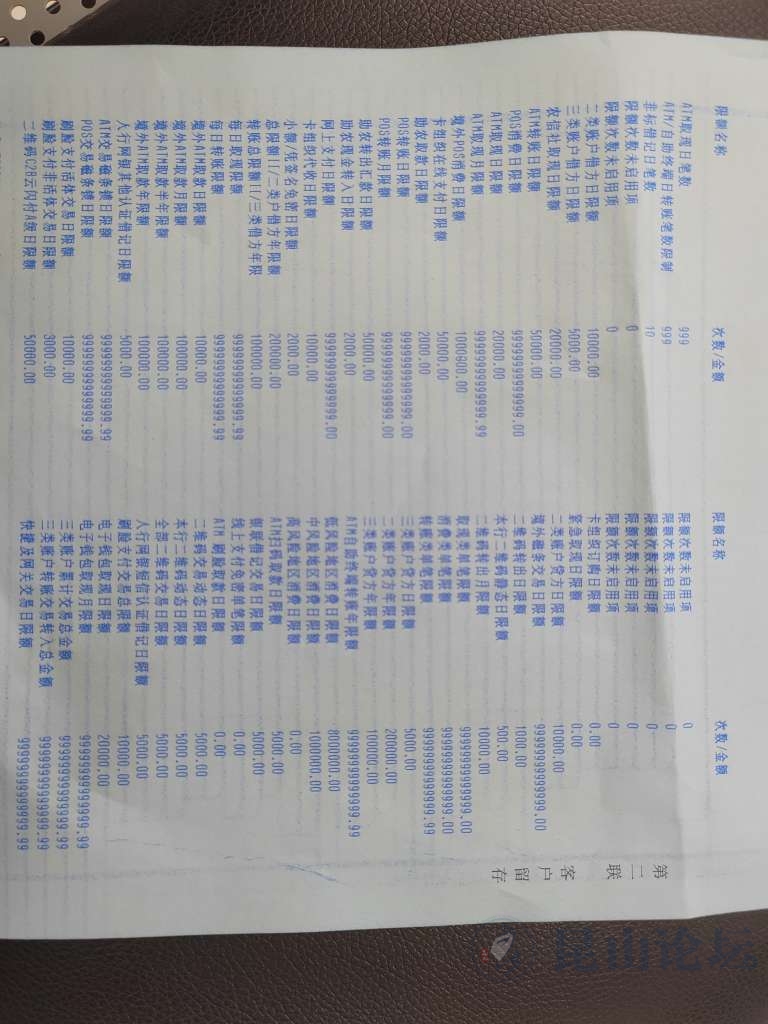 限额名称 次数/金额 限额名称 次数/金额
ATM取现日笔数 999 限额次数未启用项 0
ATM/自助终端日转账笔数限制 999 限额次数未启用项 0
非标借记日笔数 10 限额次数未启用项 0
限额次数未启用项 0 限额次数未启用项 0
限额次数未启用项 0 限额次数未启用项 0
二类账户借方日限额 10000.00 卡组织订购日限额 0.00
三类账户借方日限额 5000.00 紧急取现日限额 0.00
农信社取现日限额 20000.00 二类账户贷方日限额 10000.00
ATM转账日限额 50000.00 境外磁条交易日限额 999999999999.00
POS消费日限额 999999999999.00 二维码转出日限额 1000.00
ATM取现日限额 20000.00 本行二维码静态日限额 500.00
ATM取现月限额 999999999999.99 二维码转出月限额 10000.00
境外POS消费日限额 1000000.00 取现类单笔限额 999999999999.00
卡组织在线支付日限额 50000.00 消费类单笔限额 999999999999.00
助农取款日限额 2000.00 转账类单笔限额 999999999999.99
POS转账日限额 999999999999.00 三类账户贷方日限额 5000.00
POS转账月限额 999999999999.00 二类账户贷方年限额 200000.00
助农转出汇款日限额 50000.00 三类账户贷方年限额 100000.00
助农现金转入日限额 2000.00 ATM自助终端转账年限额 999999999999.99
网上支付日限额 999999999999.00 低风险地区消费日限额 8000000.00
卡组织代收日限额 10000.00 中风险地区消费日限额 1000000.00
小额/凭签名免密日限额 2000.00 高风险地区消费日限额 0.00
总限额II/二类户借方年限额 200000.00 ATM扫码取款日限额 5000.00
转账总限额II/三类借方年限 100000.00 银联借记交易日限额 5000.00
每日取现限额 999999999999.99 线上支付免密单笔限额 0.00
每日转账限额 999999999999.99 ATM 刷脸取款日限额 0.00
境外ATM取款日限额 10000.00 二维码交易动态日限额 5000.00
境外ATM取款月限额 100000.00 本行二维码动态日限额 5000.00
境外ATM取款半年限额 100000.00 全部二维码交易日限额 5000.00
境外ATM取款年限额 100000.00 人行网银短信认证借记日限额 5000.00
人行网银其他认证借记日限额 5000.00 刷脸支付交易总限额 10000.00
ATM交易磁条提日限额 999999999999.99 电子钱包取现日限额 20000.00
POS交易磁条提日限额 999999999999.99 电子钱包取现月限额 999999999999.99
刷脸支付活体交易日限额 10000.00 三类账户累计交易总金额 999999999999.99
刷脸支付非活体交易日限额 3000.00 三类账户转账交易转入总金额 999999999999.99
二维码C2B云闪付A级日限额 50000.00 快捷及网关交易日限额 999999999999.99
第二联 客户留存
昆山论坛